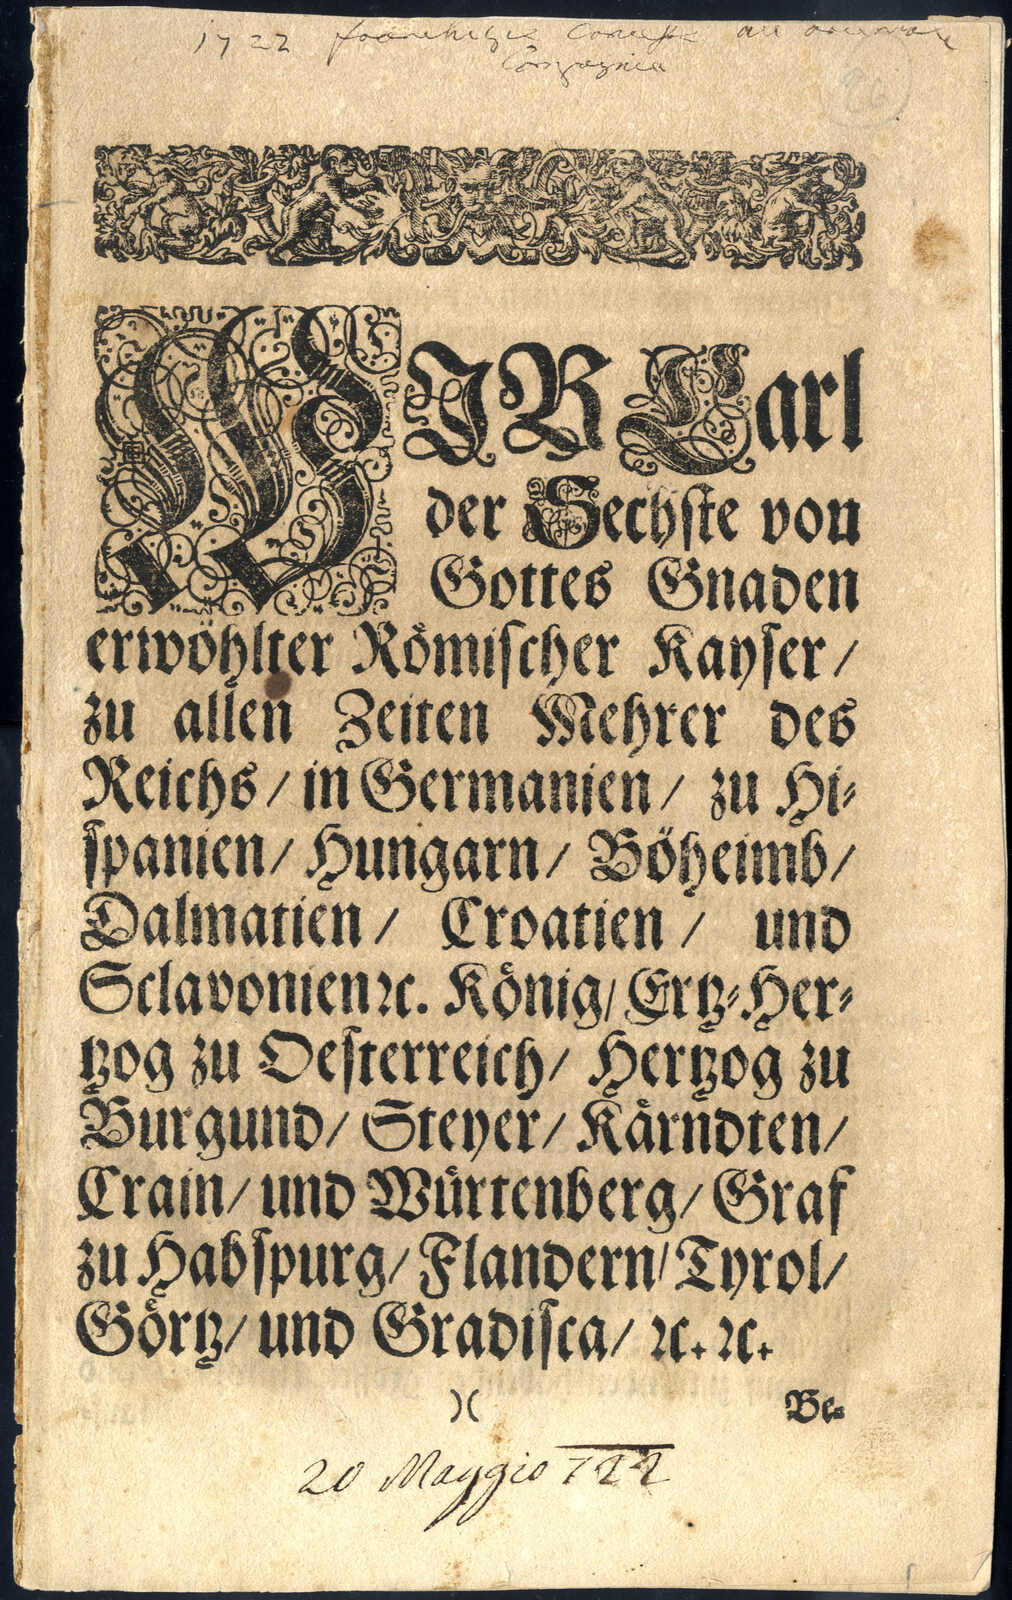 1722
Compagnia
26
WIR Carl
der Sechste von
Gottes Gnaden
erwöhlter Römischer Kayser /
zu allen Zeiten Mehrer des
Reichs / in Germanien / zu Hi-
spanien / Hungarn / Böheimb /
Dalmatien / Croatien / und
Sclavonien ꝛc. König / Ertz-Her-
tzog zu Oesterreich / Hertzog zu
Burgund / Steyer / Kärndten /
Crain / und Würtenberg / Graf
zu Habspurg / Flandern / Tyrol /
Görtz / und Gradisca / ꝛc. ꝛc.
)( Be-
20 Maggio 722